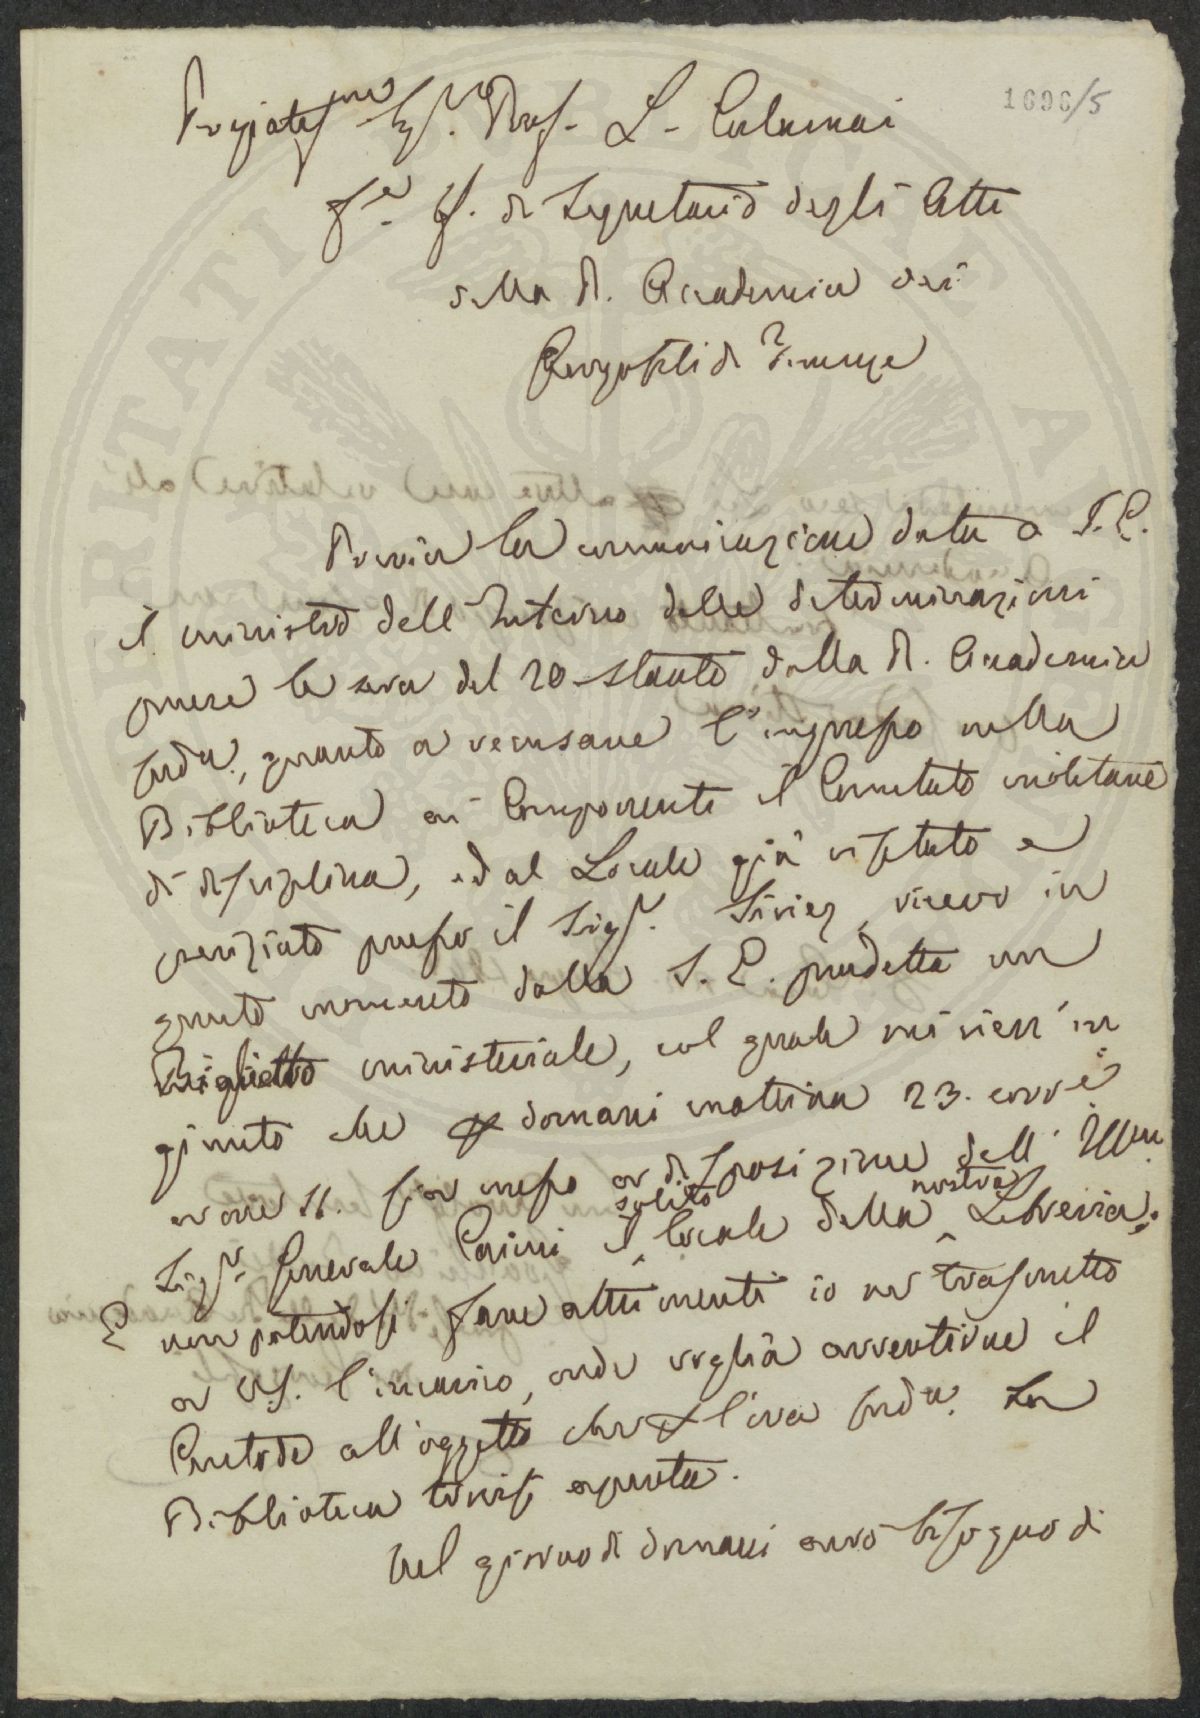 1696/5
Pregiatiss.mo Sig.r Prof. L. Calamai
f.e ff. di Segretario degli Atti
della R. Accademia dei
Georgofili di Firenze
Previa la comunicazione data a S. E.
il ministro dell'Interno delle determinazioni
prese la sera del 20 stante dalla R. Accademia
sud.a, quanto a recusare l'ingresso nella
Biblioteca ai Componenti il Comitato militare
di disciplina, ed al Locale già visitato e
presso il Sig.r, ricevo in
questo momento dalla S. E. predetta un
Biglietto ministeriale, col quale mi vien' in
giunto che domani mattina 23. corr.e
a ore 11. sia messo a disposizione dell' Illmo
Sig.r Generale il solito locale della nostra Libreria;
E non potendosi fare altrimenti io ne trasmetto
a V.S. l'incarico, onde voglia avvertirne il
Custode all'oggetto che l'ora sud.a la
Biblioteca trovisi aperta.
Nel giorno di domani avrò bisogno di